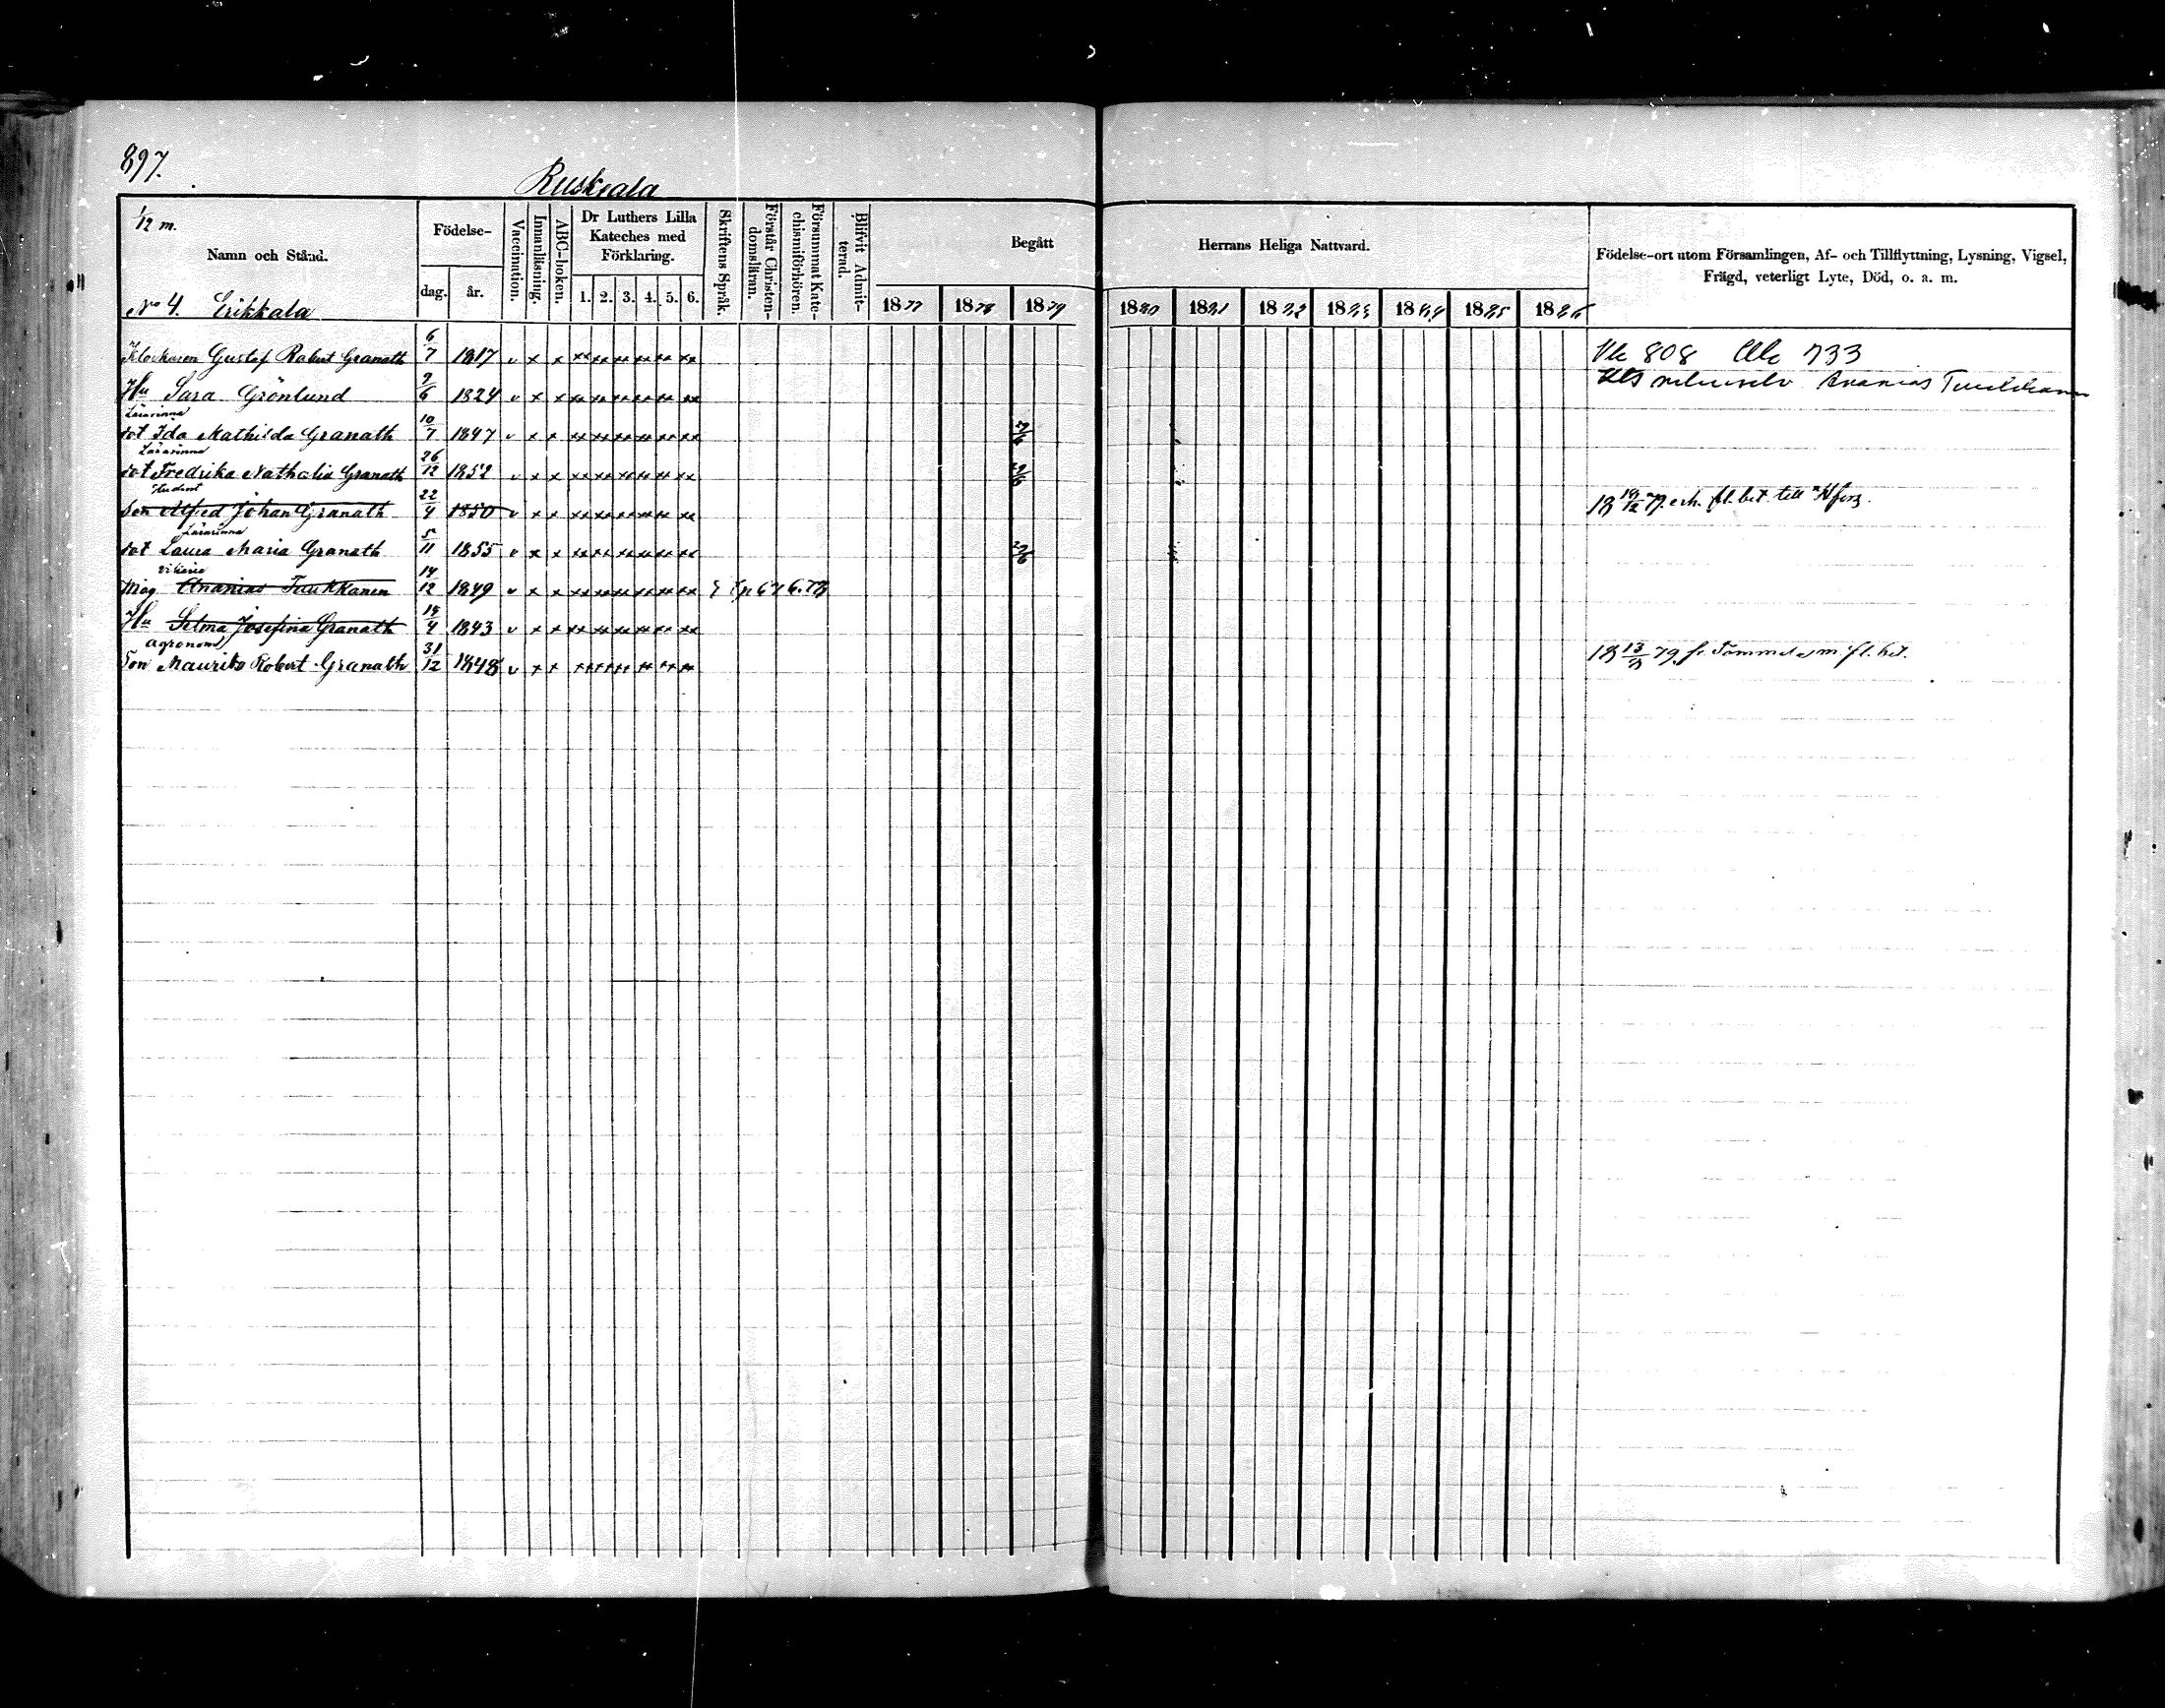 897.
Ruskeala
1/12 m.
Namn och Stånd.
Födelse-
dag. år.
Vaccination.
Innanläsning.
ABC-boken.
Dr Luthers Lilla Kateches med Förklaring.
1. 2. 3. 4. 5. 6.
Skriftens Språk.
Förstår Christendomsläran.
Försummat Katechismiförhören.
Blifvit Admitterad.
Begått Herrans Heliga Nattvard.
1877 1878 1879 1880 1881 1882 1883 1884 1885 1886
Födelse-ort utom Församlingen, Af- och Tillflyttning, Lysning, Vigsel,
Frägd, veterligt Lyte, Död, o. a. m.
No 4. Erikkala
Klockaren Gustaf Robert Granath 6/7 1817 v x x xx xx xx xx xx xx 808 733
Hu Sara Grönlund 9/6 1824 v x x xx xx xx xx xx xx Ananias
Lärarinna
dot Ida Mathilda Granath 10/7 1847 v x x xx xx xx xx xx xx
Lärarinna
dot Fredrika Nathalia Granath 26/12 1852 v x x xx xx xx xx xx xx 29/6
Student
Son Alfred Johan Granath 22/4 1850 v x x xx xx xx xx xx xx erh. fl. bet. till Hfors.
Lärarinna
dot Laura Maria Granath 5/11 1855 v x x xx xx xx xx xx xx 29/6
Mag Ananias Tuukkanen 14/12 1849 v x x xx xx xx xx xx xx
Hu Selma Josefina Granath 18/4 1843 v x x xx xx xx xx xx xx
Agronom
Son Maurits Robert Granath 31/12 1848 v x x xx xx xx xx xx xx 79 fr. m. fl. bet.